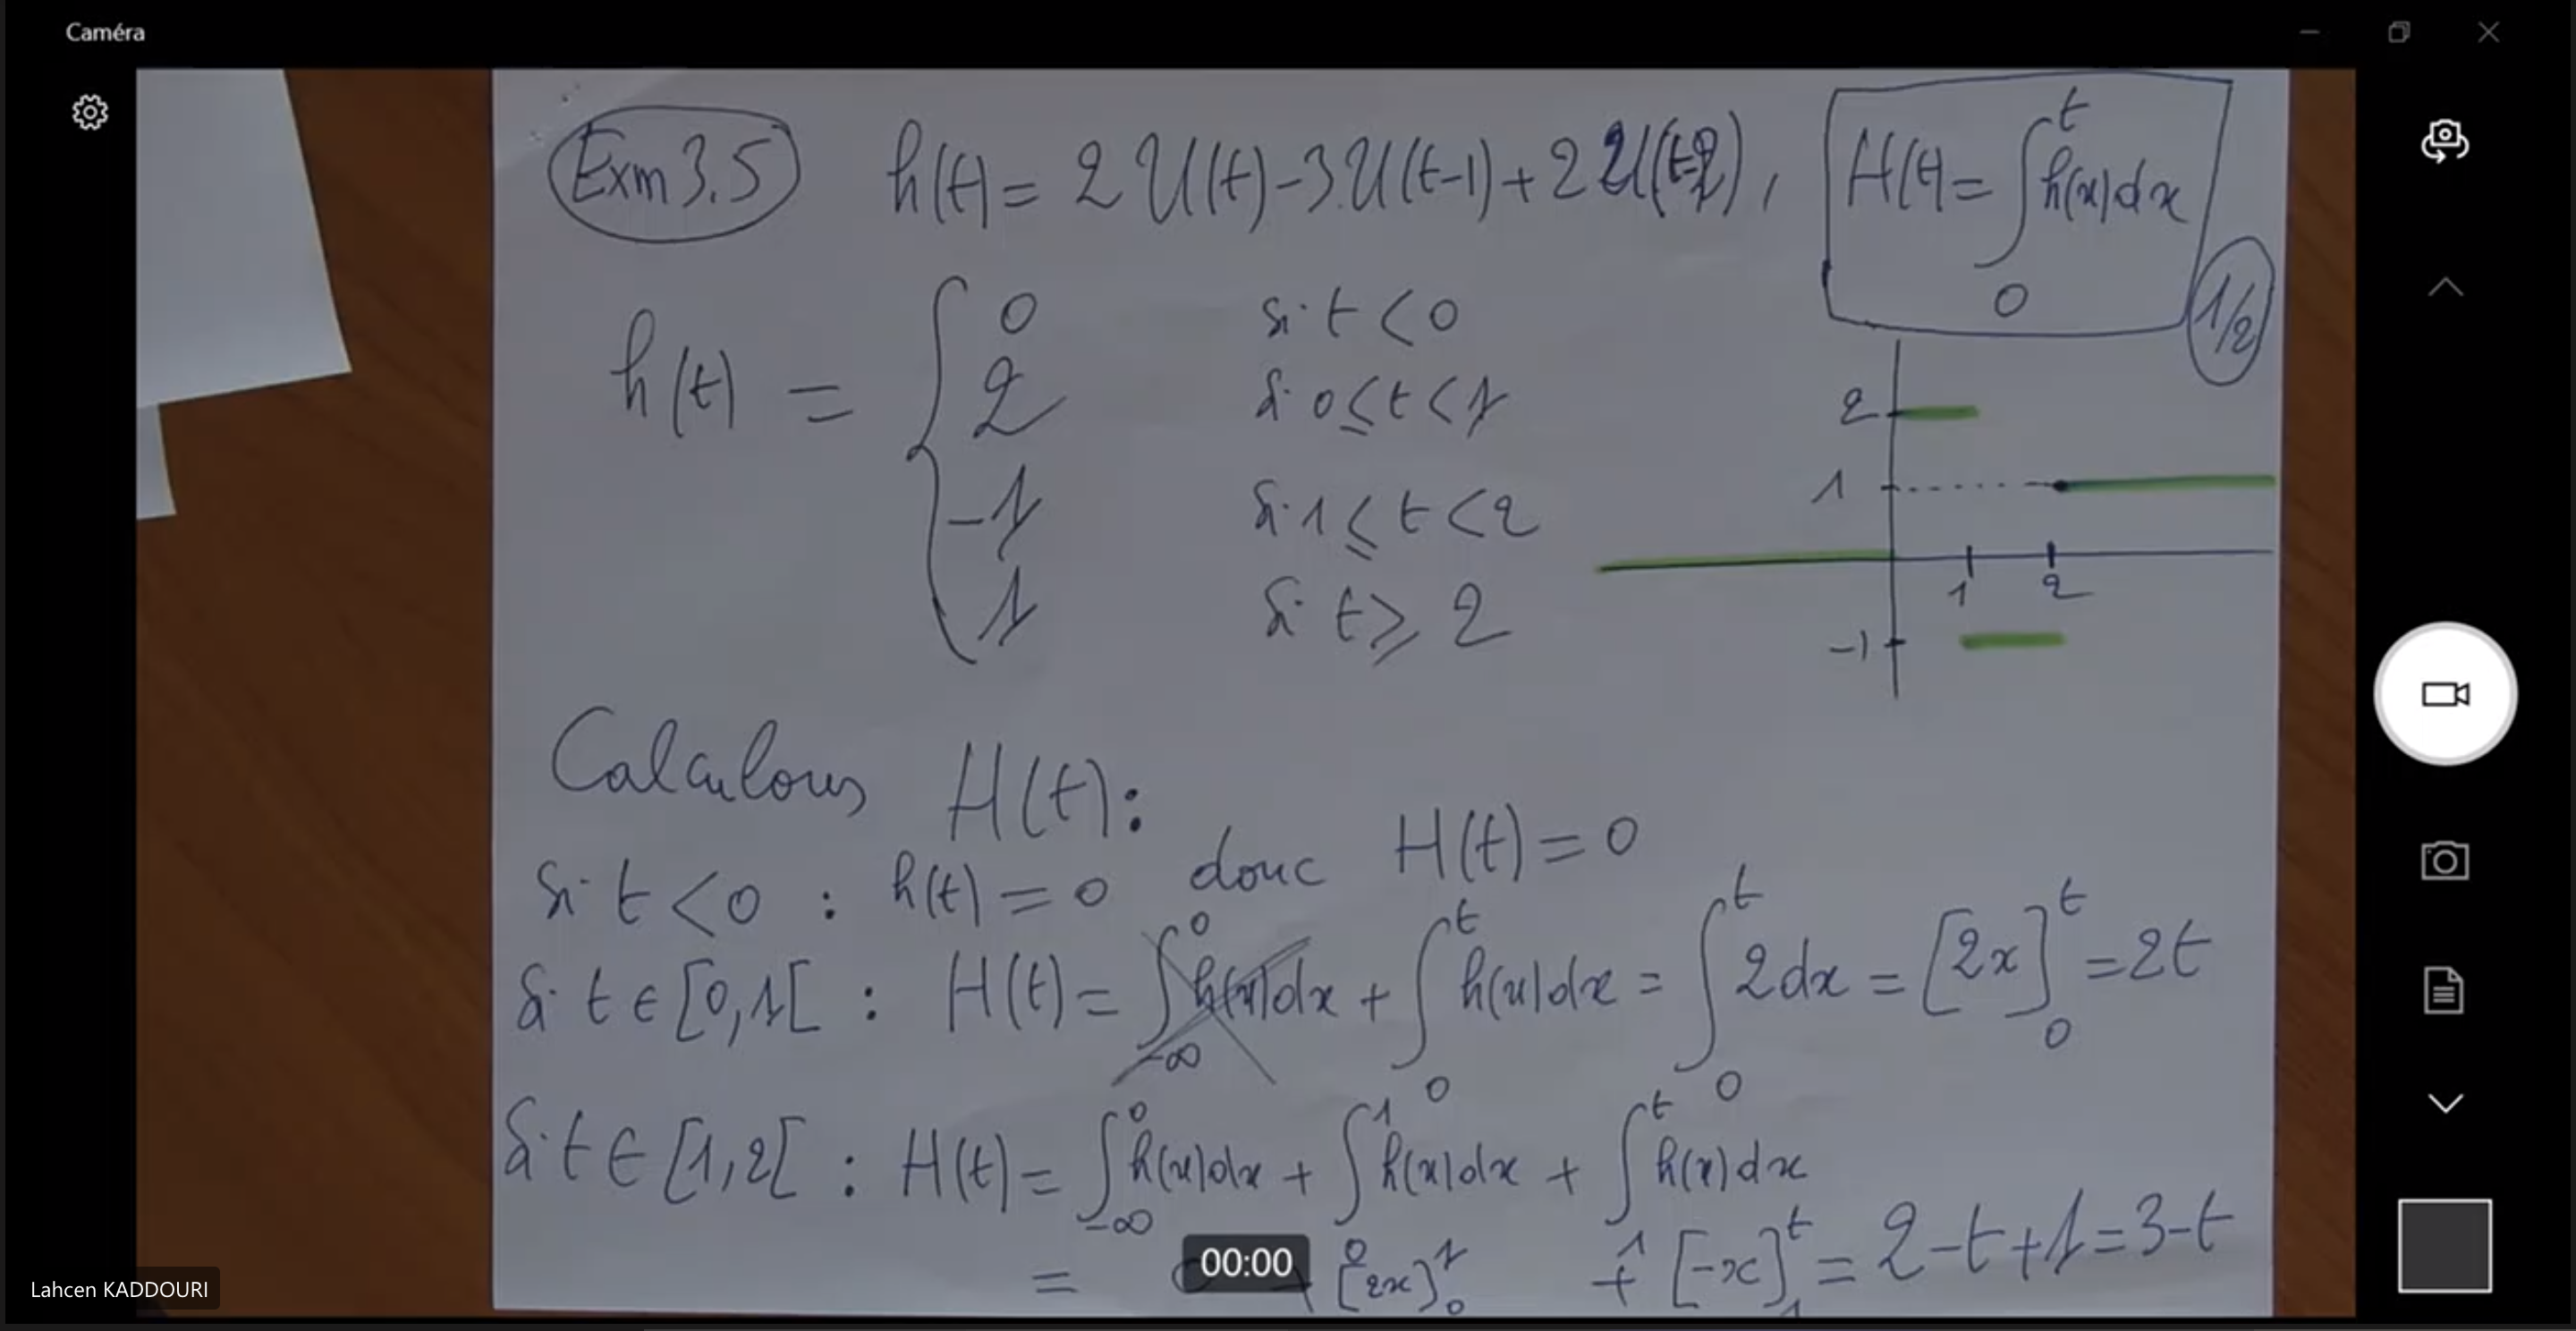 Caméra
Exm 3.5 h(t) = 2 U(t) - 3.U(t-1) + 2 U(t-2) , H(t) = ∫₀ᵗ h(x) dx
1/2
h(t) = { 0 si t < 0
2 si 0 ≤ t < 1
-1 si 1 ≤ t < 2
1 si t ≥ 2
2
1
1 2
-1
Calculons H(t):
si t < 0 : h(t) = 0 donc H(t) = 0
si t ∈ [0,1[ : H(t) = ∫₋∞⁰ h(x)dx + ∫₀ᵗ h(x)dx = ∫₀ᵗ 2dx = [2x]₀ᵗ = 2t
si t ∈ [1,2[ : H(t) = ∫₋∞⁰ h(x)dx + ∫₀¹ h(x)dx + ∫₁ᵗ h(x)dx
= + [2x]₀¹ + [-x]₁ᵗ = 2-t+1 = 3-t
00:00
Lahcen KADDOURI